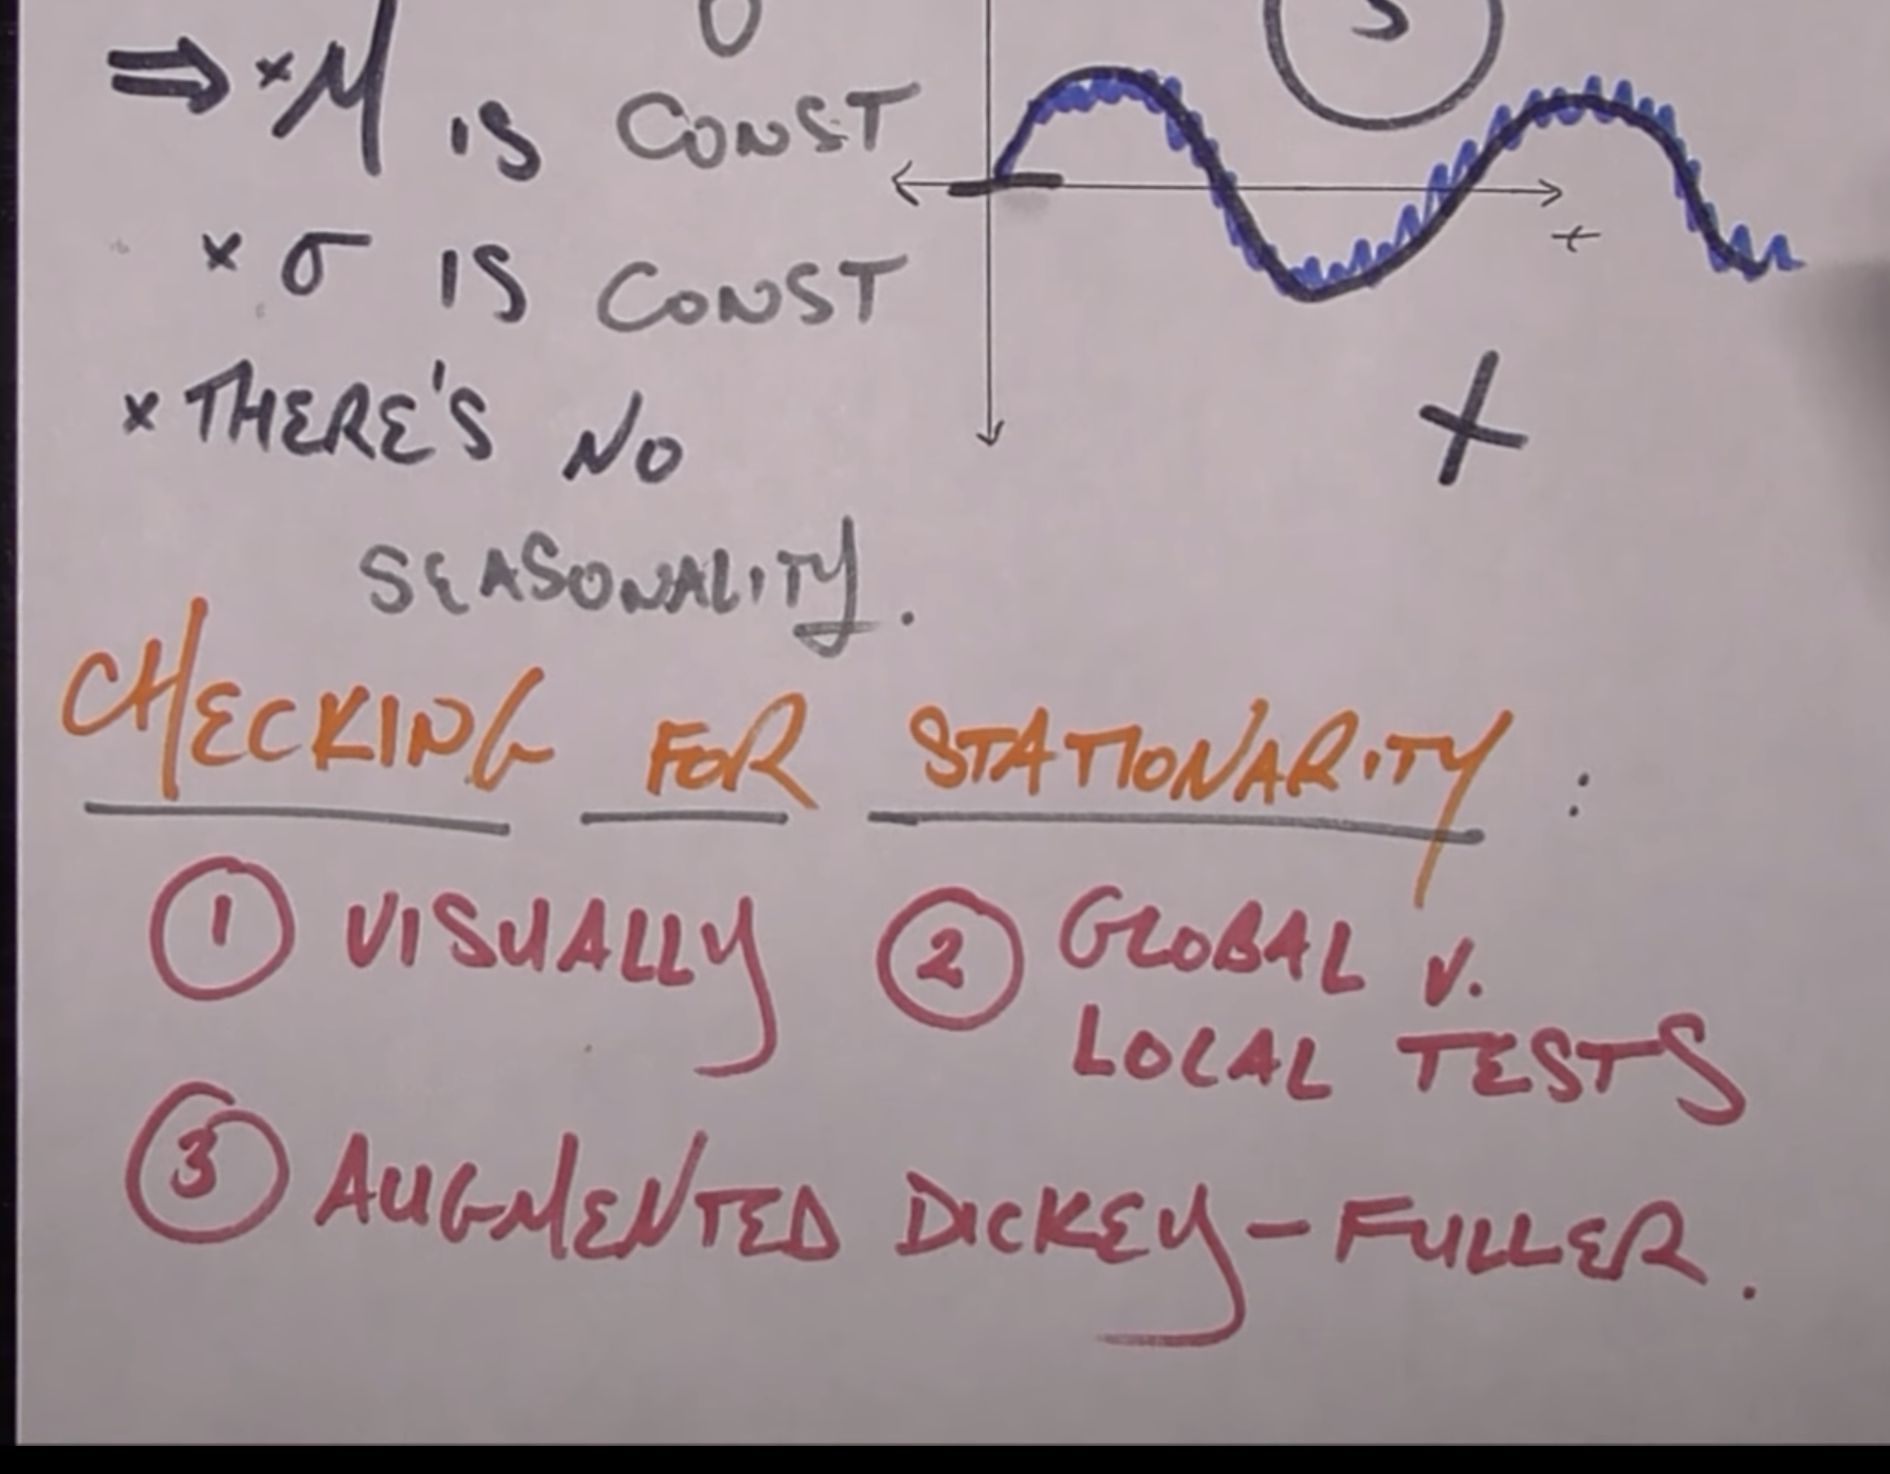 ⇒ × μ is CONST
3
× σ is CONST
t
× THERE'S NO
SEASONALITY.
X
CHECKING FOR STATIONARITY :
① VISUALLY
② GLOBAL v.
LOCAL TESTS
③ AUGMENTED DICKEY-FULLER.